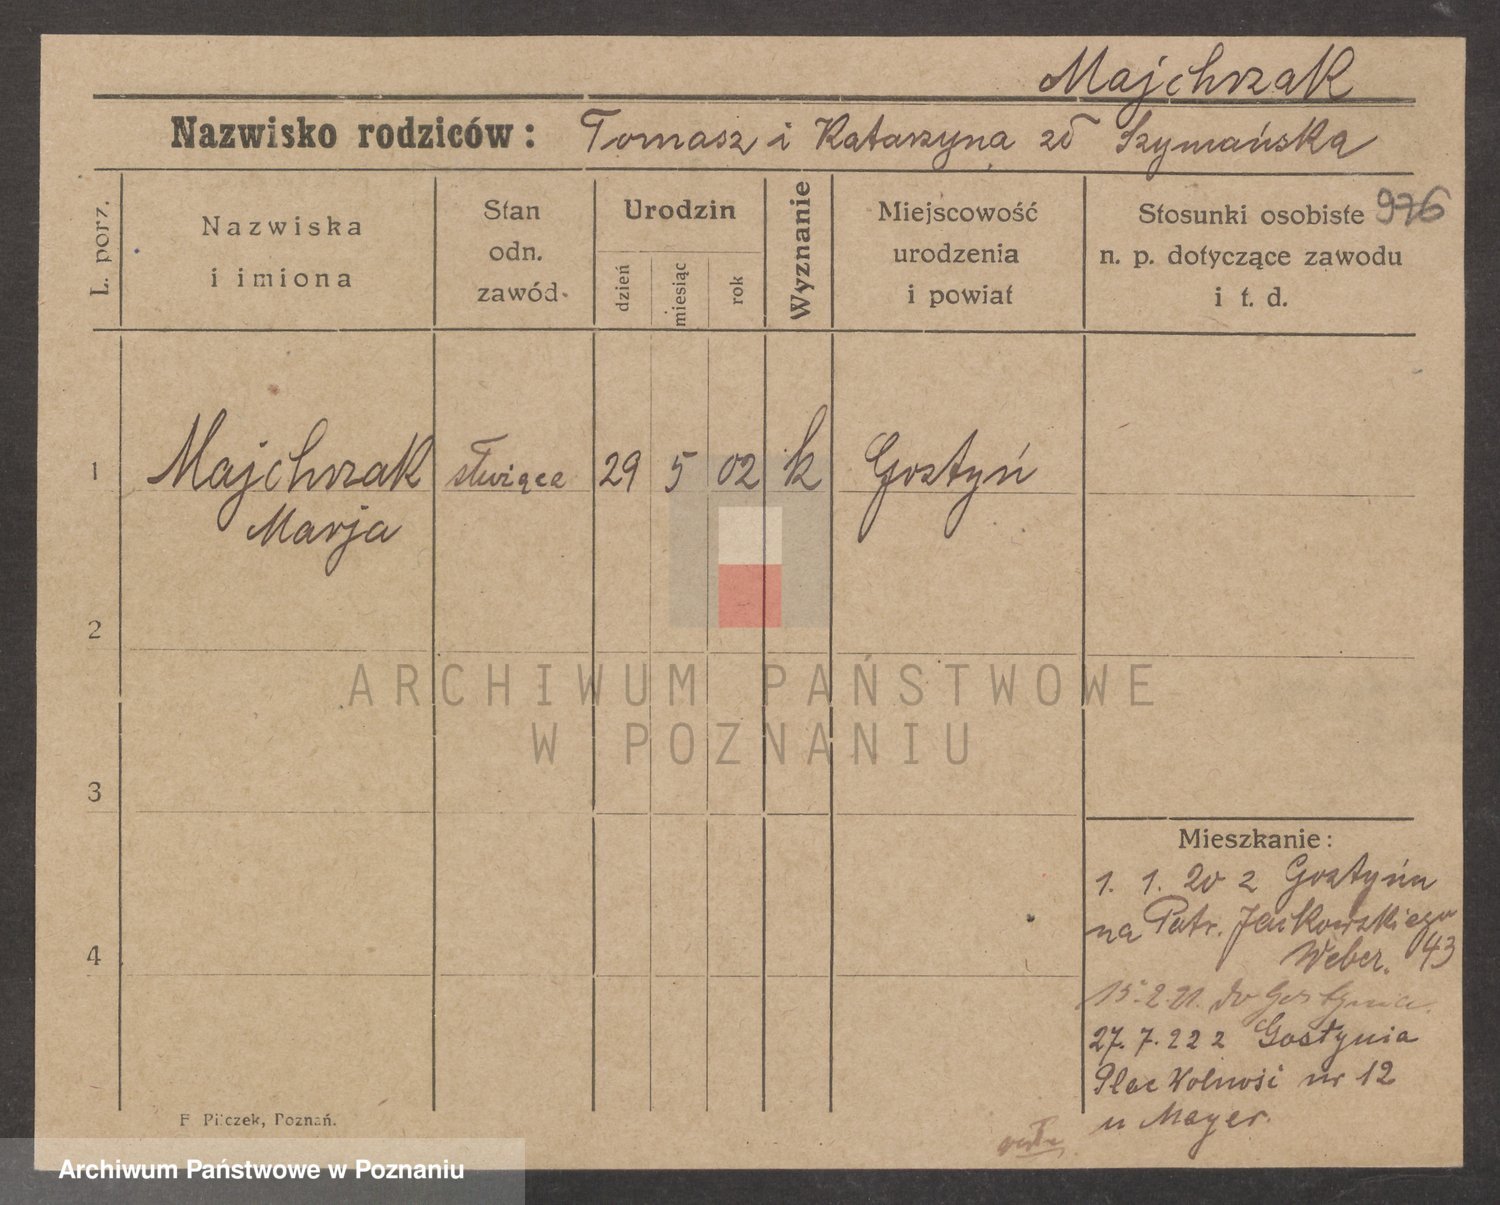 Majchrzak
Nazwisko rodziców: Tomasz i Katarzyna zd Szymańska
976
L. porz.
Nazwiska
i imiona
Stan
odn.
zawód
Urodzin
dzień
miesiąc
rok
Wyznanie
Miejscowość
urodzenia
i powiat
Stosunki osobiste
n. p. dotyczące zawodu
i t. d.
1 Majchrzak służąca 29 5 02 k Gostyń
Marja
2
ARCHIWUM PAŃSTWOWE
W POZNANIU
3
Mieszkanie:
1. 1. 20 z Gostynia
na Patr. Jackowskiego
Weber. 43
4
15.2.21. do Gostynia.
27. 7. 22 z Gostynia
Plac Wolności nr 12
u Mayer.
F. Pilczek, Poznań.
Archiwum Państwowe w Poznaniu